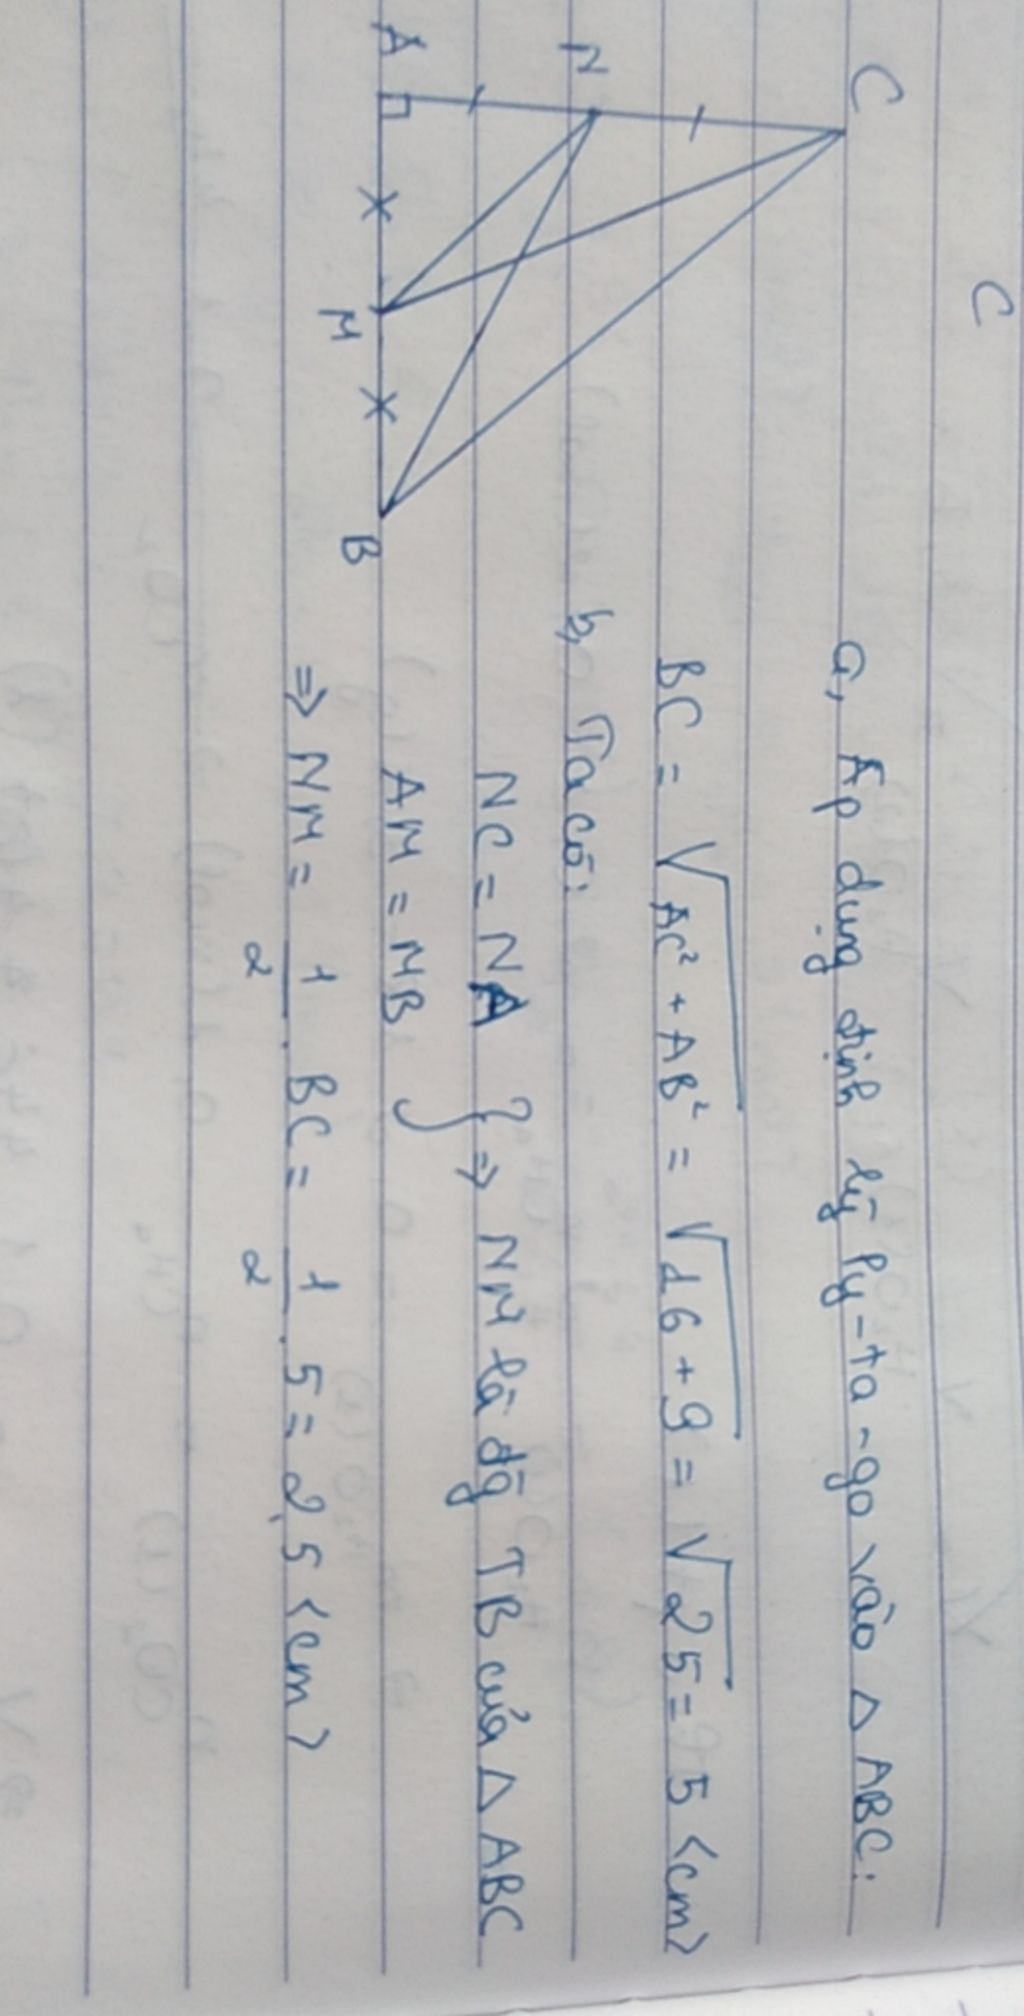 C
C
N
A
M
B
a, Áp dụng định lý Py-ta-go vào △ ABC:
BC = √AC² + AB² = √16 + 9 = √25 = 5 <cm>
b, Ta có:
NC = NA } => NM là đg TB của △ ABC
AM = MB
=> NM = 1/2 . BC = 1/2 . 5 = 2,5 <cm>